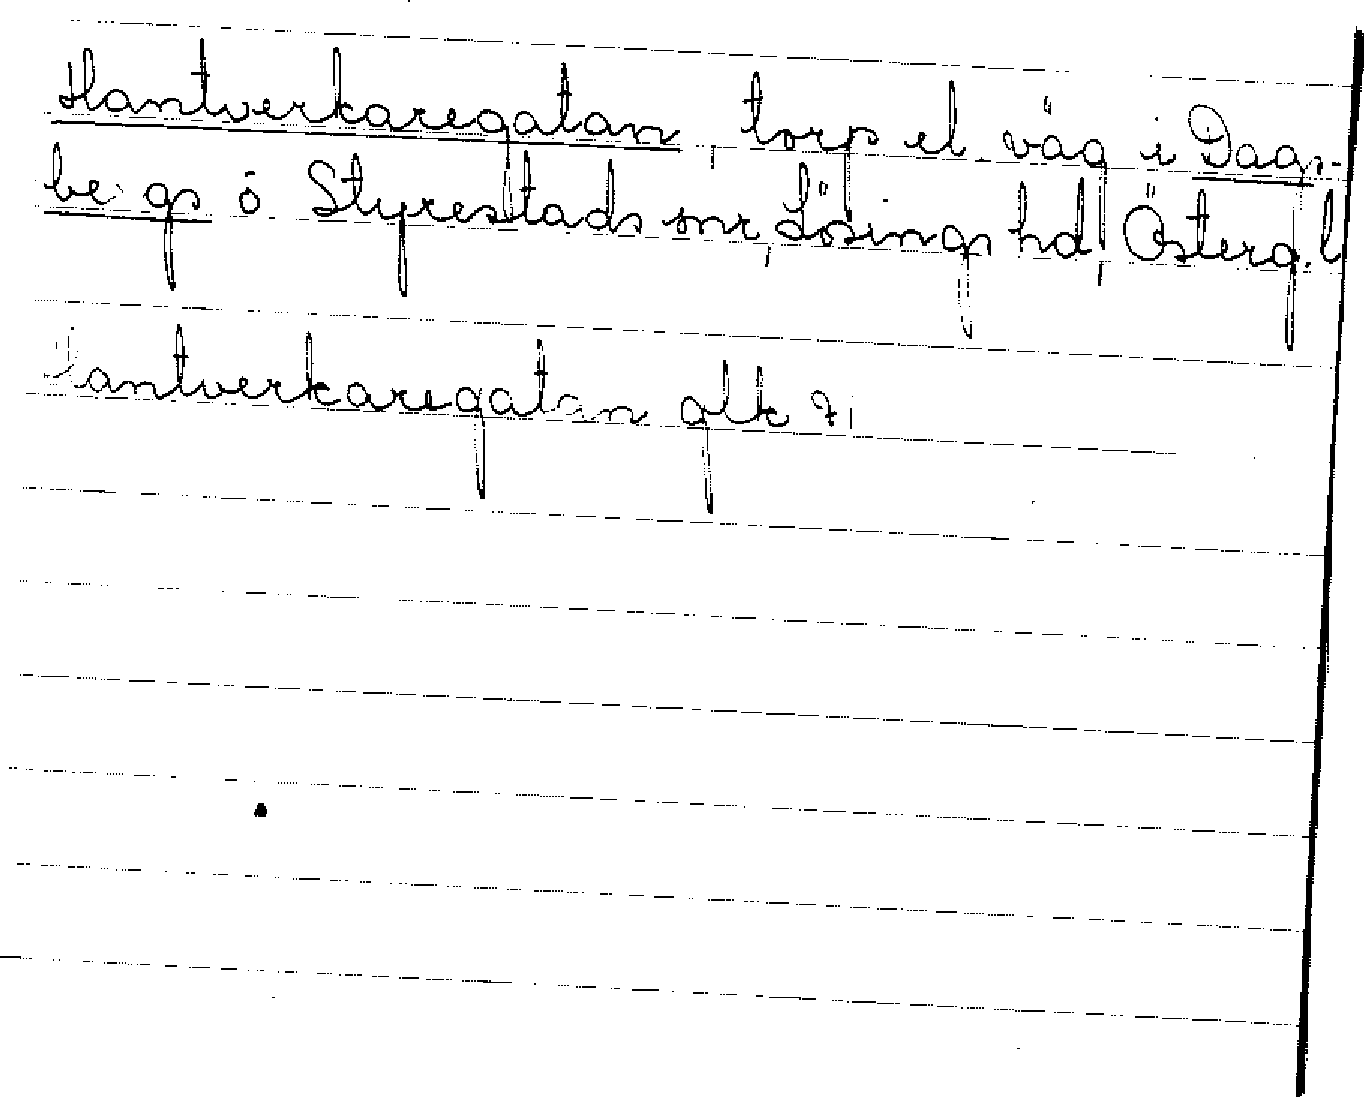 Hantverkaregatan, torp el. väg i Dags-
bergs o Styrestads snr, Lösings hd, Österg. l
Hantverkaregatan glk